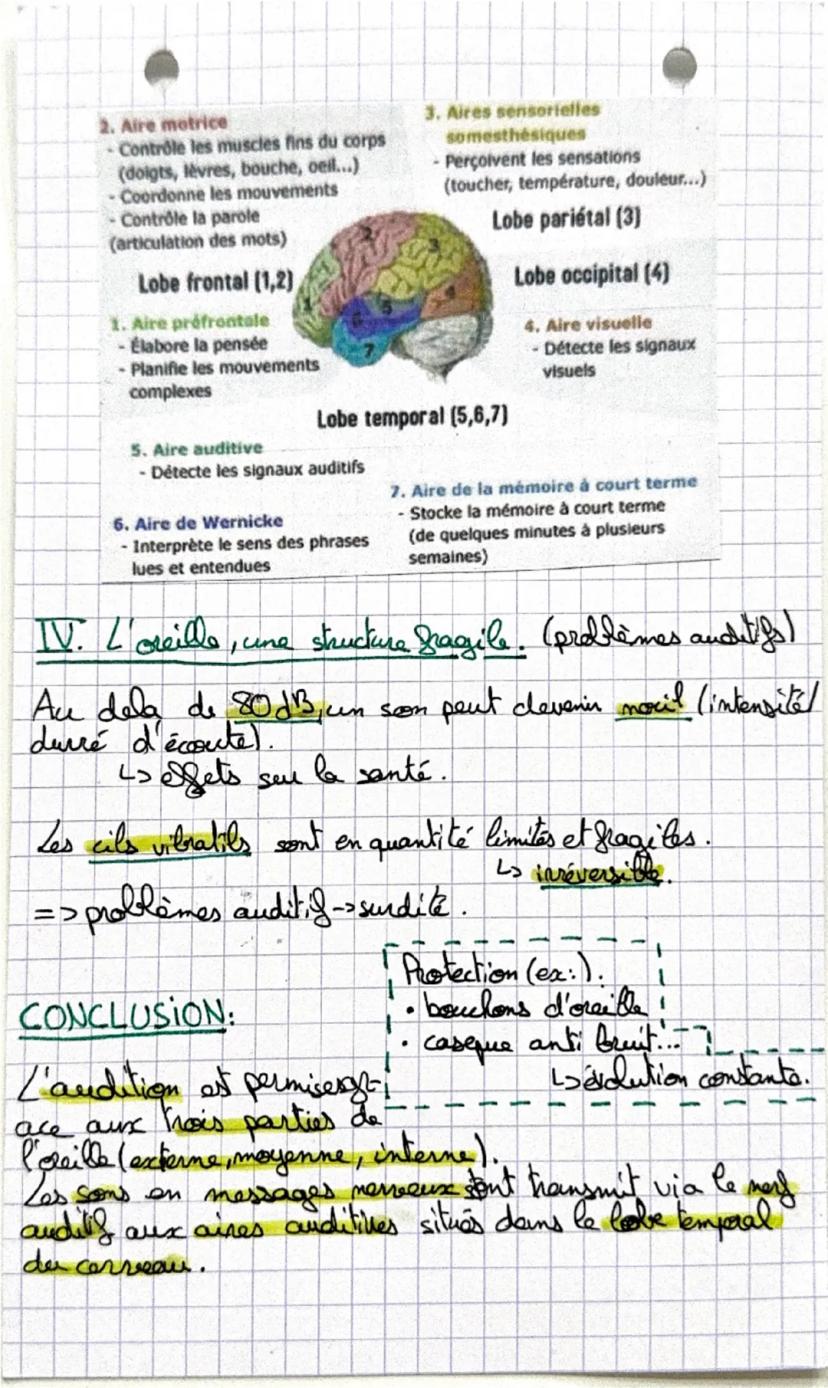 2. Aire motrice
- Contrôle les muscles fins du corps
(doigts, lèvres, bouche, oeil...)
- Coordonne les mouvements
- Contrôle la parole
(articulation des mots)
3. Aires sensorielles
somesthésiques
- Perçoivent les sensations
(toucher, température, douleur...)
Lobe pariétal (3)
Lobe frontal (1,2)
Lobe occipital (4)
1. Aire préfrontale
- Élabore la pensée
- Planifie les mouvements
complexes
4. Aire visuelle
- Détecte les signaux
visuels
1
2
3
4
5
6
7
Lobe temporal (5,6,7)
5. Aire auditive
- Détecte les signaux auditifs
6. Aire de Wernicke
- Interprète le sens des phrases
lues et entendues
7. Aire de la mémoire à court terme
- Stocke la mémoire à court terme
(de quelques minutes à plusieurs
semaines)
IV. L'oreille, une structure fragile. (problèmes auditifs)
Au dela de 80 dB, un son peut devenir nocif (intensité/
durré d'écoute).
↳ effets sur la santé.
Les cils vibratils sont en quantité limités et fragiles.
↳ irréversible.
=> problèmes auditif -> surdité.
Protection (ex:).
• bouchons d'oreille
• casque anti bruit...
↳ évolution constante.
CONCLUSION:
L'audition est permise gr-
ace aux trois parties de
l'oreille (externe, moyenne, interne).
Les sons en messages nerveux sont transmit via le nerf
auditif aux aires auditives situés dans le lobe temporal
du cerveau.